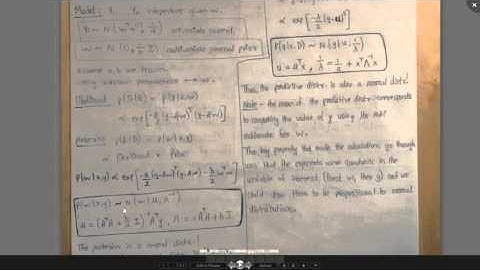 Model: Y, Y_n independent given w.
Y_i ~ N(w^T x^(i), 1/a) univariate normal
w ~ N(0, 1/b I) multivariate normal
Assume a, b are known.
Likelihood p(D|θ) = p(y|x,w)
∝ exp[-a/2 (y-Aw)^T (y-Aw)]
Posterior p(θ|D) = p(w|x,y)
∝ Likelihood × Prior
p(w|x,y) ∝ exp[-a/2 (y-Aw)^T (y-Aw) - b/2 w^T w]
p(w|x,y) ~ N(w|μ, Λ^-1)
μ = (A^T A + b/a I)^-1 A^T y, Λ = aA^T A + bI
The posterior is a normal distr.!
∝ exp[-λ/2 (y-u)^2]
P(y|x,D) ~ N(y|u, 1/λ)
u = μ^T x, 1/λ = 1/a + x^T Λ^-1 x
Thus, the predictive distr. is also a normal distr.!
Note - the mean of the predictive distr. corresponds
to computing the value of y using the
estimate for w.
The key property that made the calculations go through
was that the exponents were quadratic in the
variable of interest (first w, then y) and we
could show them to be proportional to normal
distributions.